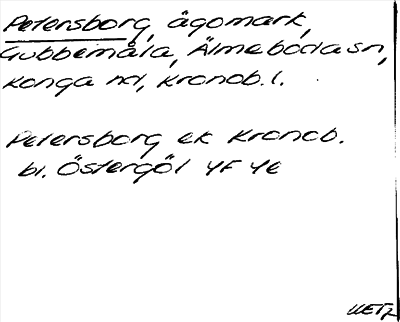 Petersborg, ägomark,
Gubbemåla, Älmeboda sn,
Konga hd, Kronob. l.
Petersborg ek Kronob.
bl. Östergöl 4F 4e